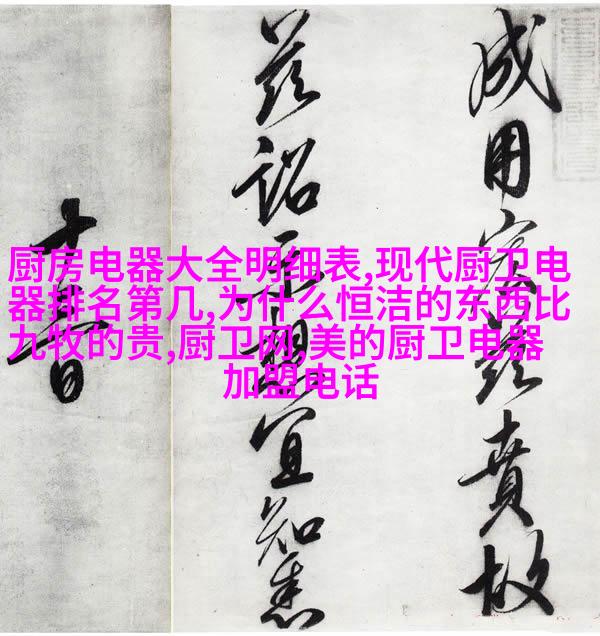 厨房电器大全明细表,现代厨卫电
器排名第几,为什么恒洁的东西比
九牧的贵,厨卫网,美的厨卫电器
加盟电话
成用茲賁故
茲詔示想宜知悉
日